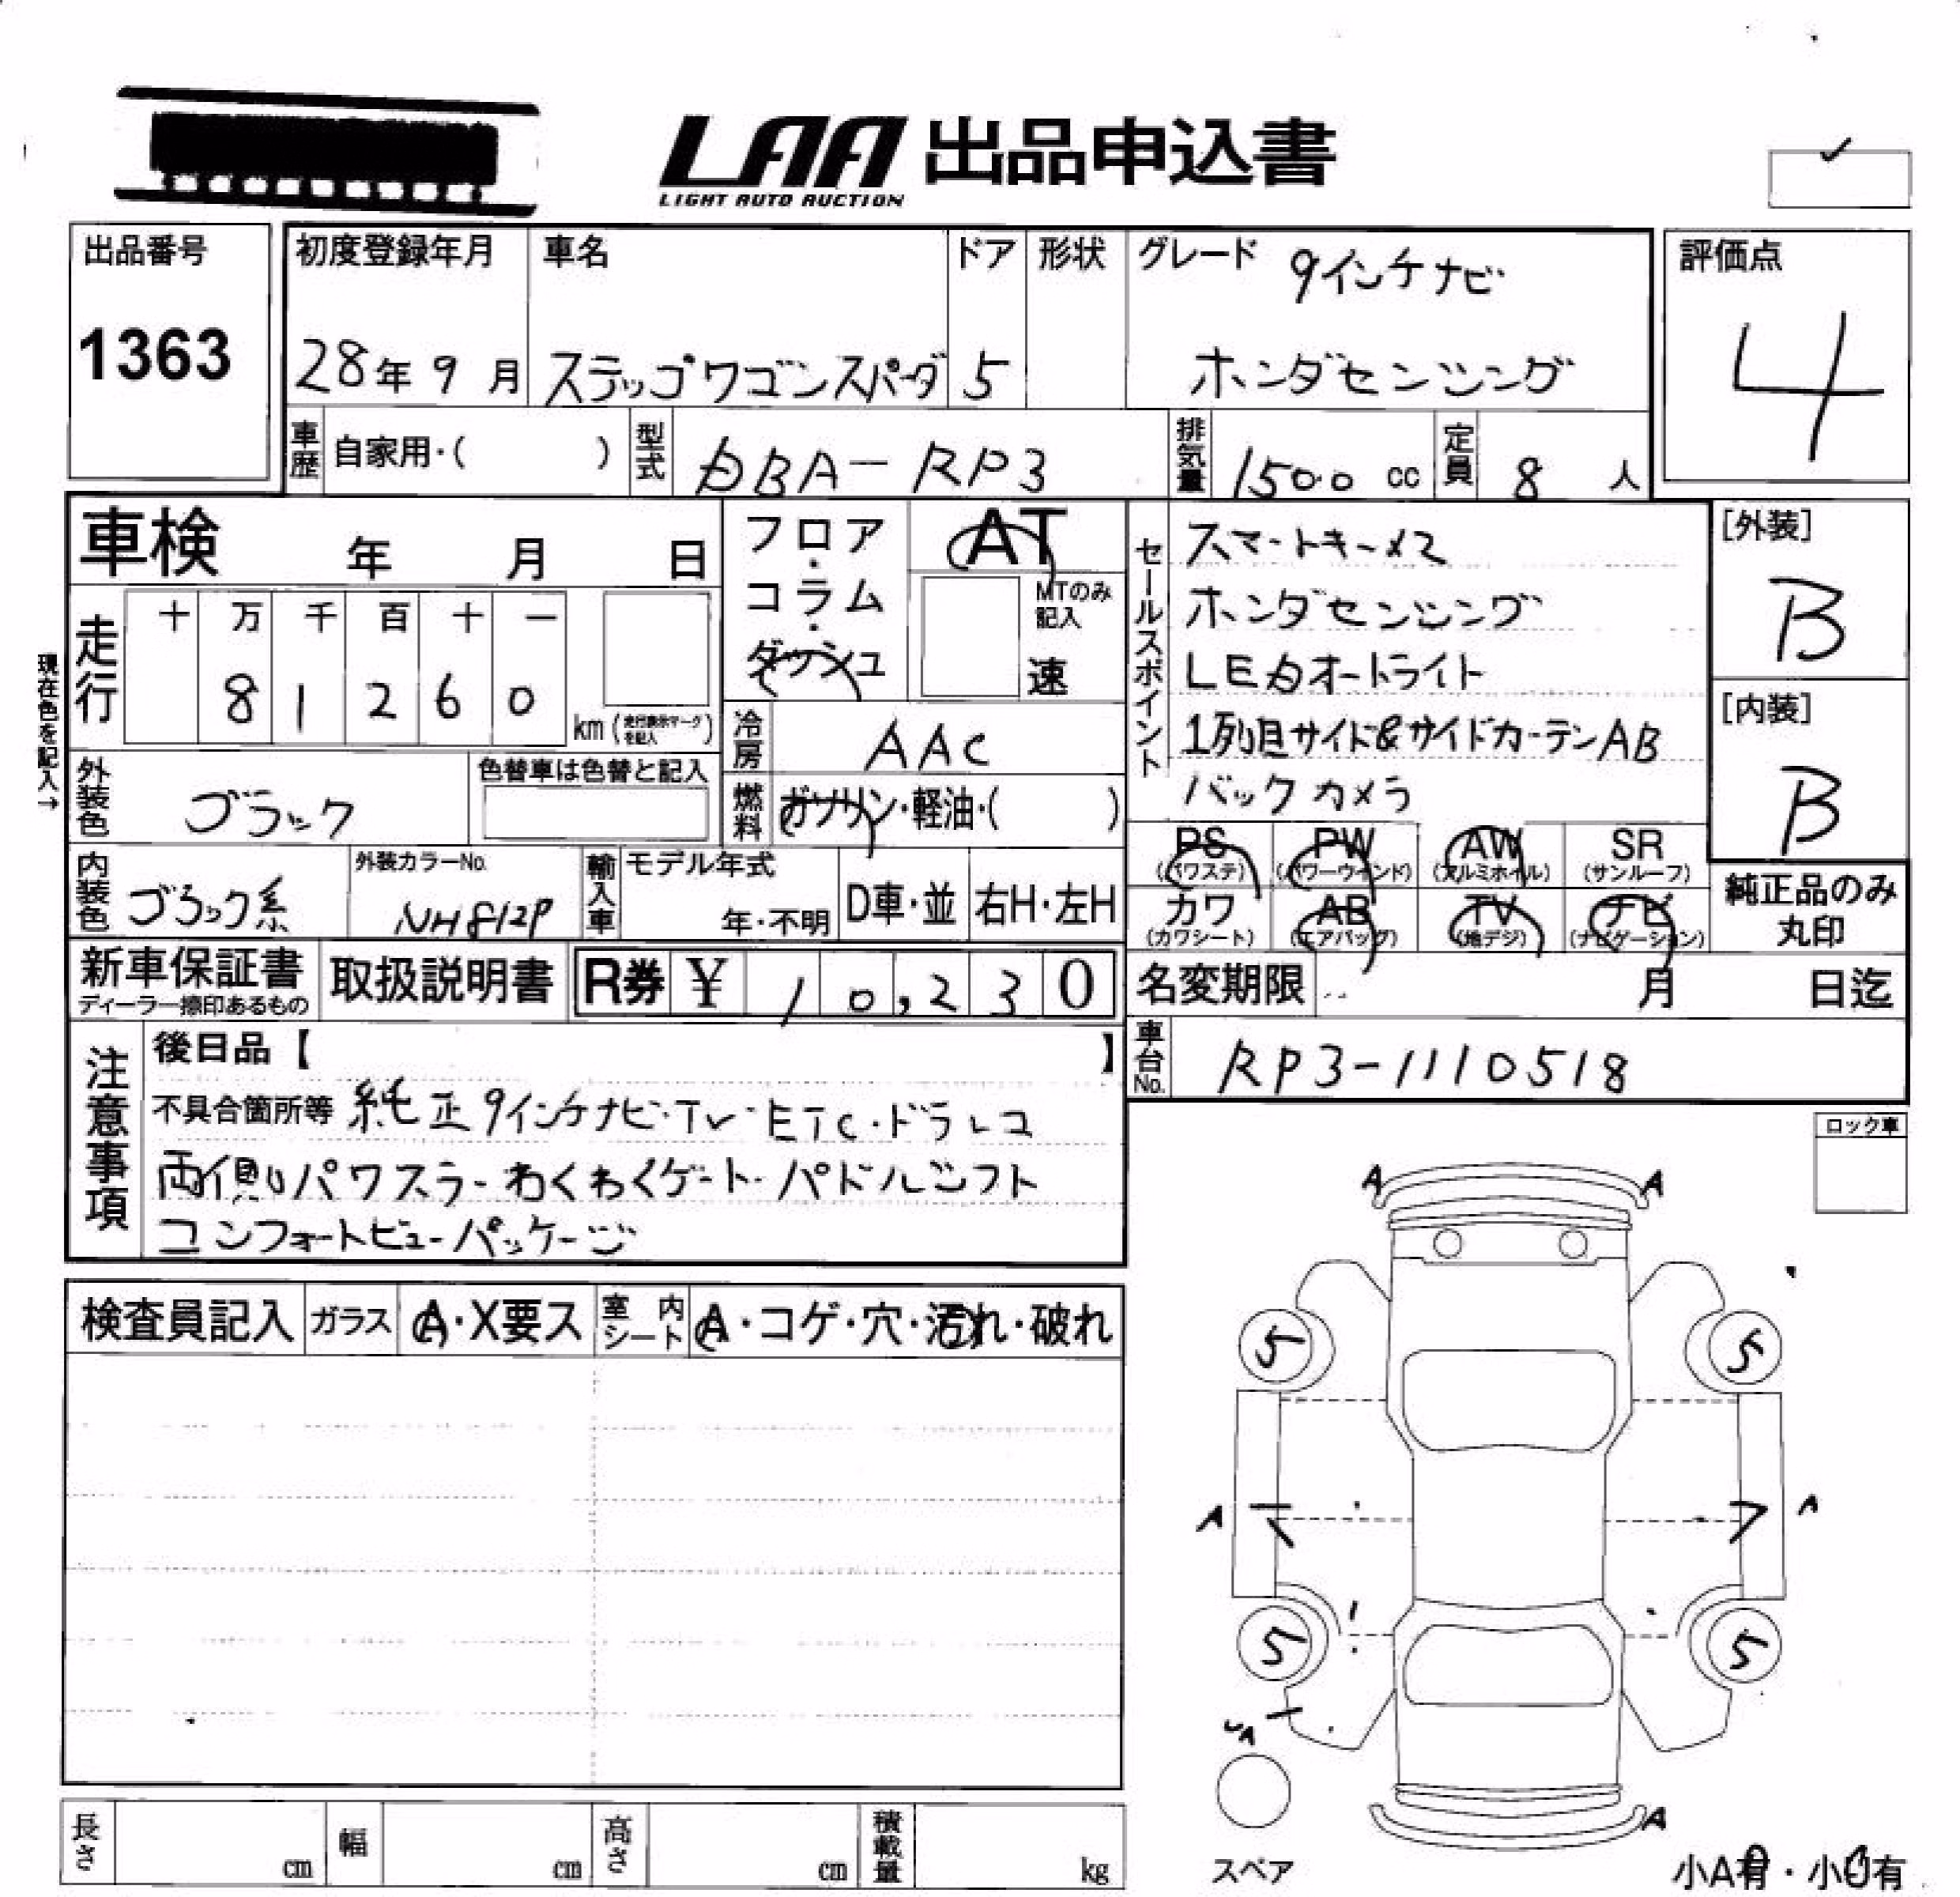 LAA 出品申込書
LIGHT AUTO AUCTION
出品番号
1363
初度登録年月
28年 9月
車名
ステップワゴンスパーダ
ドア
5
形状
グレード 9インチナビ
ホンダセンシング
評価点
4
車歴 自家用・( )
型式 DBA-RP3
排気量 1500 cc
定員 8 人
車検 年 月 日
フロア・コラム・ダッシュ
AT
MTのみ記入
速
セールスポイント
スマートキー×2
ホンダセンシング
LEDオートライト
1列目サイド&サイドカーテンAB
バックカメラ
[外装]
B
[内装]
B
現在色を記入→
走行
十 万 千 百 十 一
8 1 2 6 0
km (走行表示マークを記入)
冷房 AAC
外装色 ブラック
色替車は色替と記入
燃料 ガソリン・軽油・( )
PS (パワステ)
PW (パワーウインド)
AW (アルミホイル)
SR (サンルーフ)
カワ (カワシート)
AB (エアバッグ)
TV (地デジ)
ナビ (ナビゲーション)
純正品のみ
丸印
内装色 ブラック系
外装カラーNo. NH812P
輸入車 モデル年式
年・不明
D車・並
右H・左H
新車保証書
ディーラー捺印あるもの
取扱説明書
R券 ¥ 10,230
名変期限 月 日迄
車台No. RP3-1110518
注意事項
後日品【 】
不具合箇所等 純正9インチナビ・TV・ETC・ドラレコ
両側パワスラ・わくわくゲート・パドルシフト
コンフォートビューパッケージ
ロック車
検査員記入
ガラス A・X要ス
室内シート A・コゲ・穴・汚れ・破れ
A A
5 5
A A
5 5
A
A
スペア
小A有・小U有
長さ cm
幅 cm
高さ cm
積載量 kg